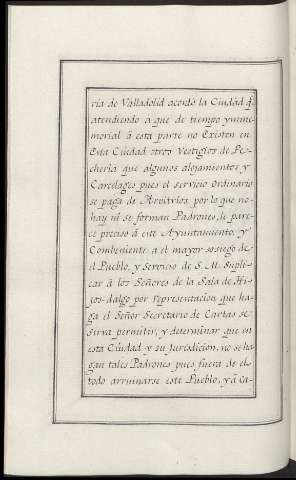 ría de Valladolid acordó la Ciudad q.
atendiendo a que de tiempo ynme-
morial á esta parte no Existen en
Esta Ciudad otros Vestigios de Pe-
chería que algunos alojamientos y
Carcelages pues el servicio ordinario
se paga de Arvitrios, por lo que no
hay ni se forman Padrones, le pare-
ce preciso á este Ayuntamiento, y
Combeniente a el mayor sosiego de
el Pueblo, y Servicio de S. M. Supli-
car á los Señores de la Sala de Hi-
jos-dalgo por representacion que ha-
ga el Señor Secretario de Cartas se
sirva permitir, y determinar que en
esta Ciudad y su Jurisdicion, no se ha-
gan tales Padrones pues fuera de el
todo arruinarse este Pueblo, y á Ca-